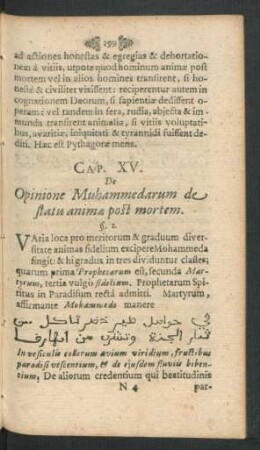 199
ad actiones honestas & egregias & dehortatio-
nem à vitiis, utpote quod hominum animæ post
mortem vel in alios homines transirent, si ho-
nestè & civiliter vixissent: reciperentur autem in
cognationem Deorum, si sapientiæ dedissent o-
peram: vel tandem in fera, rudia, abjecta & im-
munda transirent animalia, si vitiis voluptati-
bus, avaritiæ, iniquitati & tyrannidi fuissent de-
diti. Hæc est Pythagoræ mens.
CAP. XV.
De
Opinione Muhammedarum de
statu animæ post mortem.
§. 2.
VAria loca pro meritorum & graduum diver-
sitate animas fidelium excipere Mohammeda
fingit: & hi gradus in tres dividuntur classes;
quarum prima Prophetarum est, secunda Mar-
tyrum, tertia vulgò fidelium. Prophetarum Spi-
ritus in Paradisum rectà admitti. Martyrum,
affirmante Mohammede manere
في حواصل طير خضر تأكل من
ثمار الجنة وتشرب من انهارها
In vesiculis collorum avium viridium, fructibus
paradisi vescentium, & de ejusdem fluviis biben-
tium, De aliorum credentium quî beatitudinis
N 4
par-